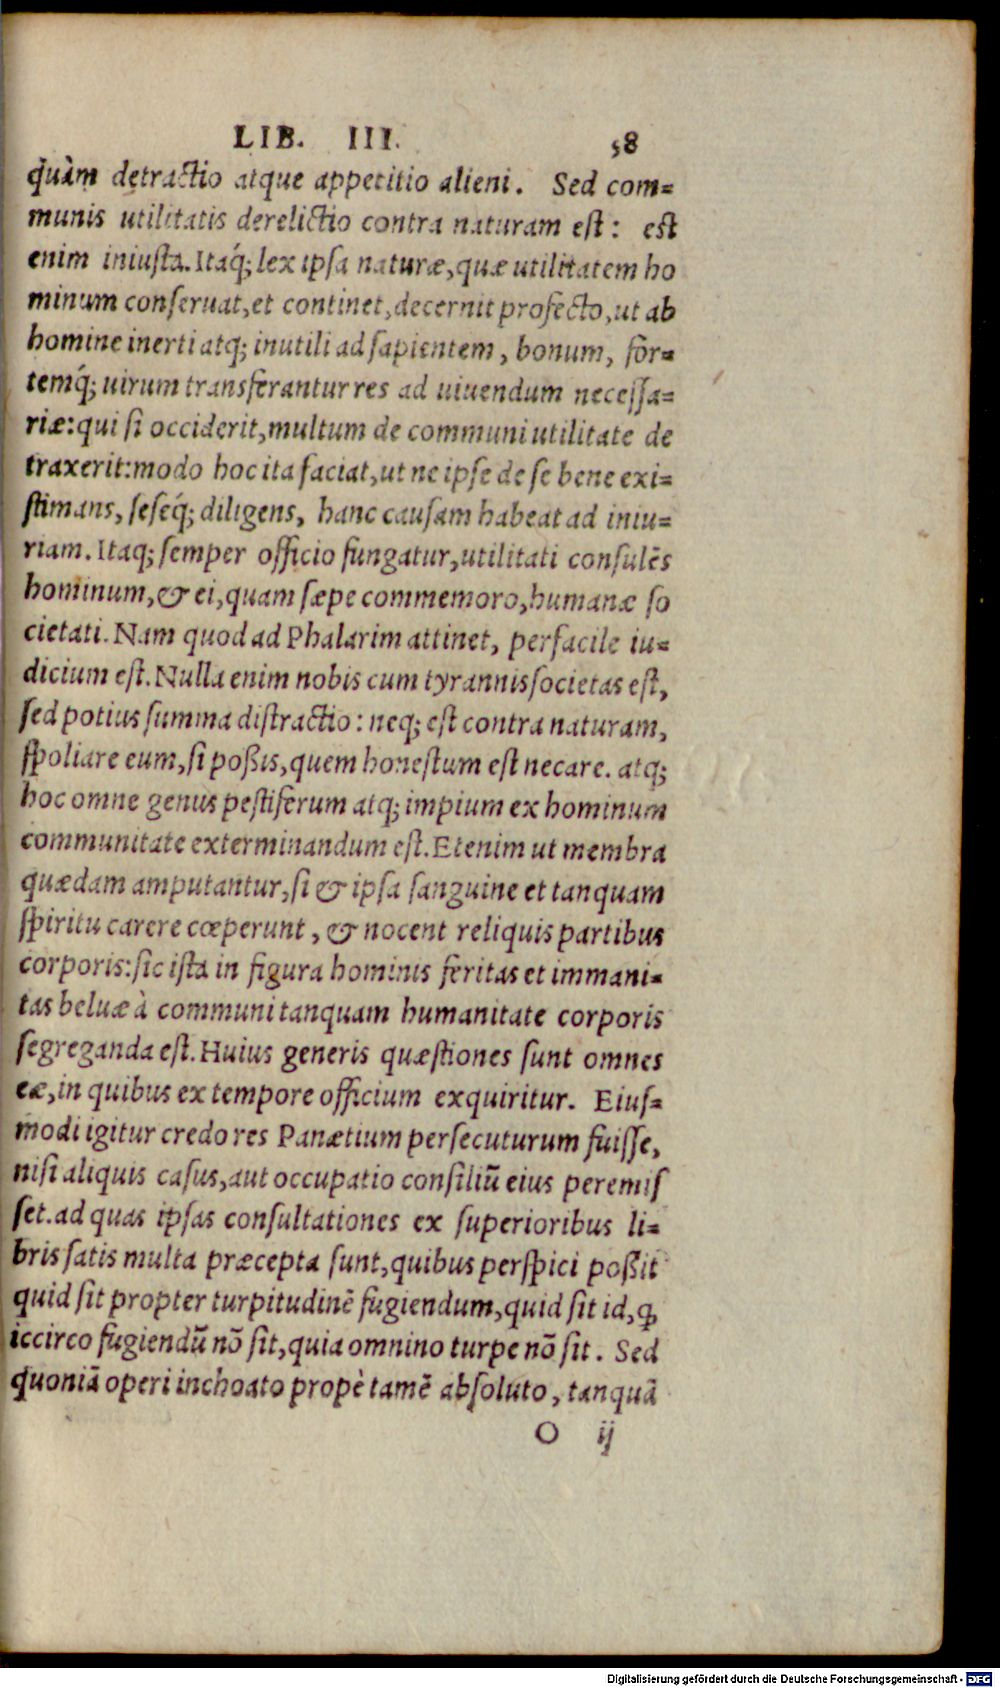 LIB. III. 58
quàm detractio atque appetitio alieni. Sed com=
munis utilitatis derelictio contra naturam eſt: eſt
enim iniuſta. Itaq́; lex ipſa naturæ, quæ utilitatem ho
minum conſeruat, et continet, decernit profecto, ut ab
homine inerti atq; inutili ad ſapientem, bonum, for=
temq́; uirum transferantur res ad uiuendum neceſſa=
riæ: qui ſi occiderit, multum de communi utilitate de
traxerit: modo hoc ita faciat, ut ne ipſe de ſe bene exi=
ſtimans, ſeſeq́; diligens, hanc cauſam habeat ad iniu=
riam. Itaq; ſemper officio fungatur, utilitati conſulẽs
hominum, & ei, quam ſæpe commemoro, humanæ ſo
cietati. Nam quod ad Phalarim attinet, perfacile iu=
dicium eſt. Nulla enim nobis cum tyrannis ſocietas eſt,
ſed potius ſumma diſtractio: neq; eſt contra naturam,
ſpoliare eum, ſi poßis, quem honeſtum eſt necare. atq;
hoc omne genus peſtiferum atq; impium ex hominum
communitate exterminandum eſt. Etenim ut membra
quædam amputantur, ſi & ipſa ſanguine et tanquam
ſpiritu carere cœperunt, & nocent reliquis partibus
corporis: ſic iſta in figura hominis feritas et immani=
tas beluæ à communi tanquam humanitate corporis
ſegreganda eſt. Huius generis quæſtiones ſunt omnes
eæ, in quibus ex tempore officium exquiritur. Eiuſ=
modi igitur credo res Panætium perſecuturum fuiſſe,
niſi aliquis caſus, aut occupatio conſiliũ eius peremiſ
ſet. ad quas ipſas conſultationes ex ſuperioribus li=
bris ſatis multa præcepta ſunt, quibus perſpici poßit
quid ſit propter turpitudinẽ fugiendum, quid ſit id, ꝙ
iccirco fugiendũ nõ ſit, quia omnino turpe nõ ſit. Sed
quoniã operi inchoato propè tamẽ abſoluto, tanquã
O ij
Digitalisierung gefördert durch die Deutsche Forschungsgemeinschaft - DFG